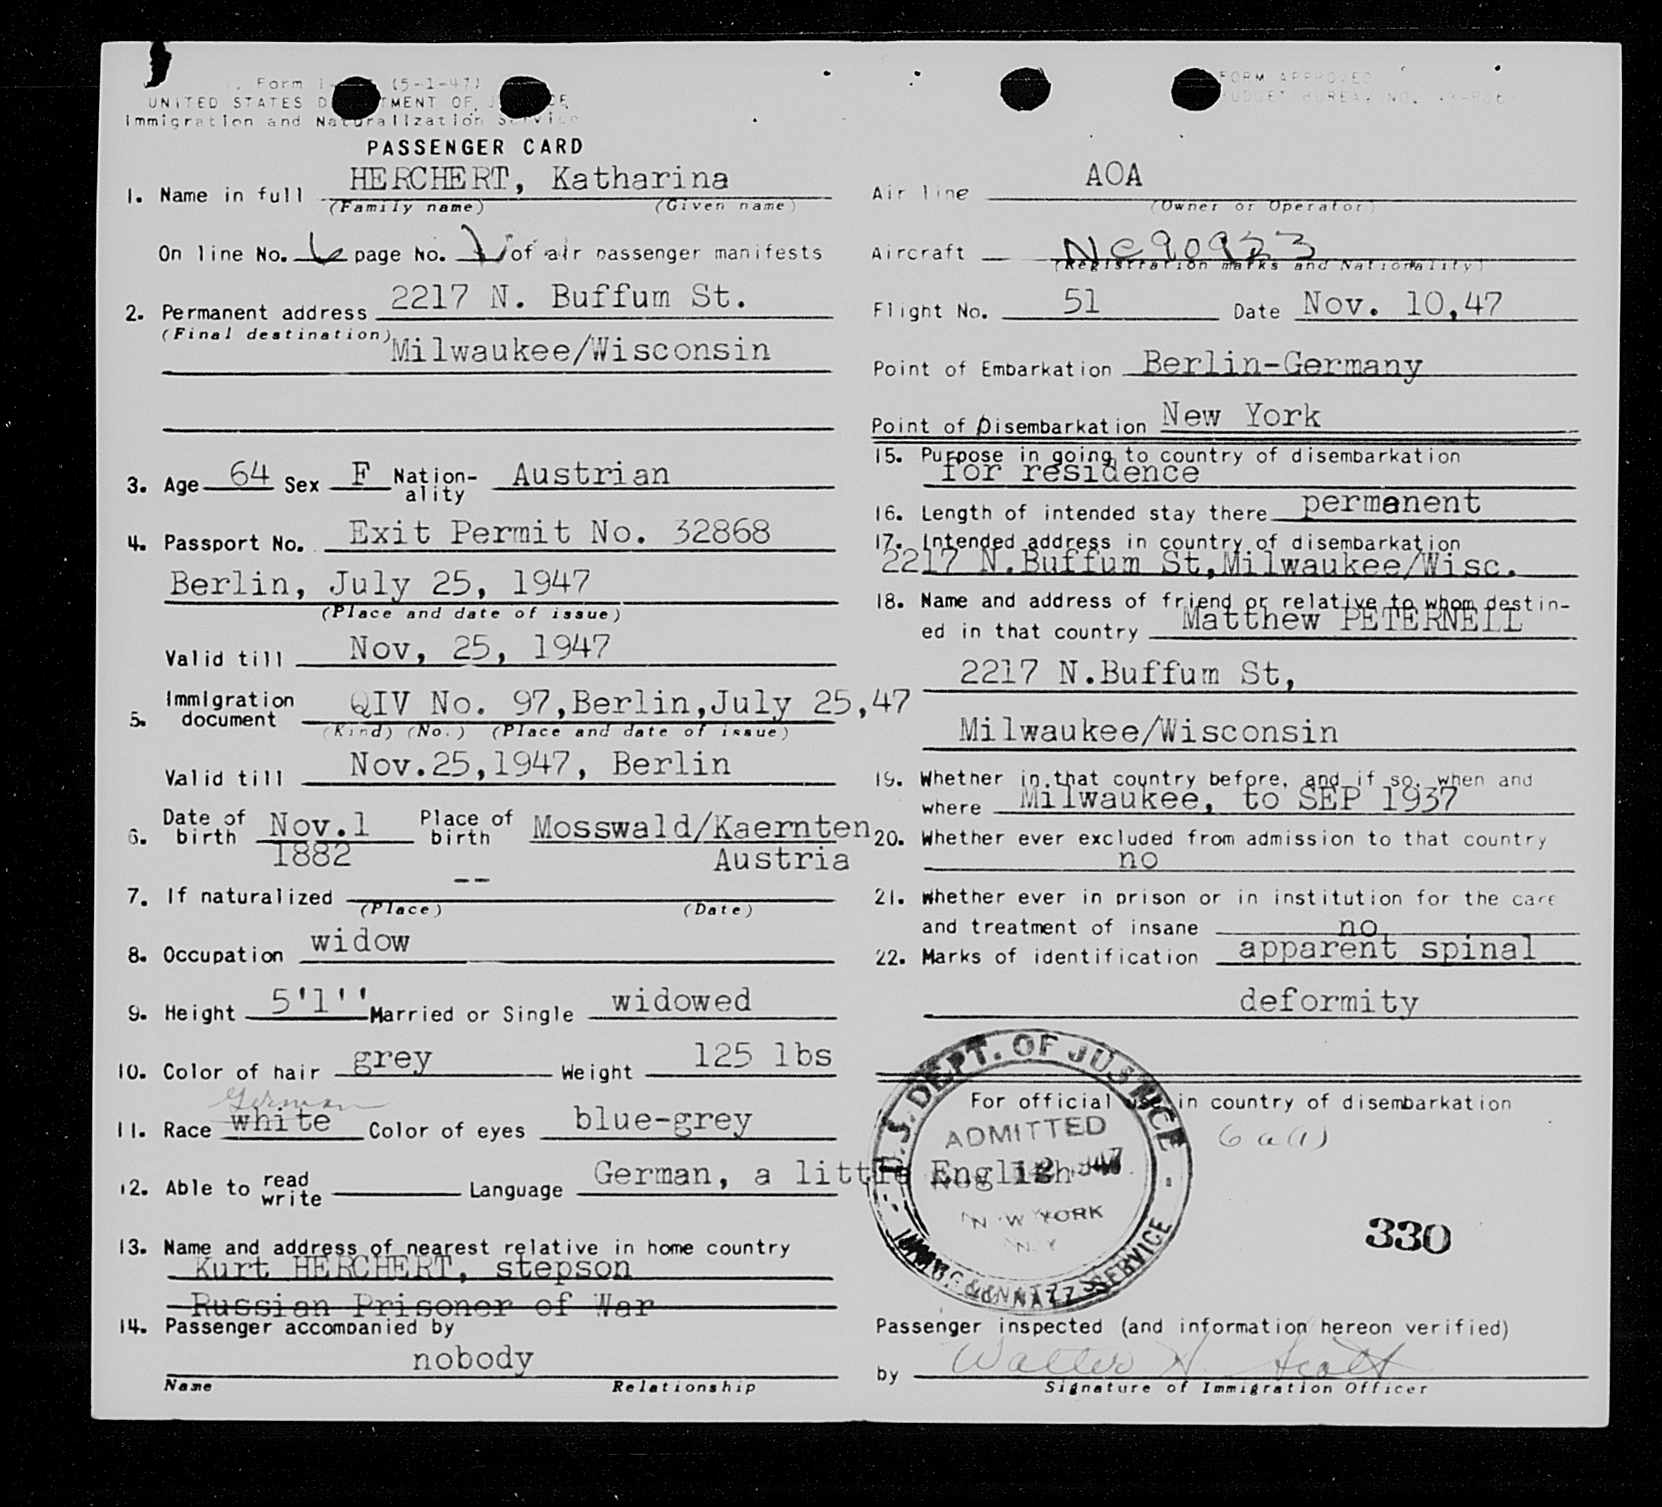 Form (5-1-47)
UNITED STATES DEPARTMENT OF JUSTICE
Immigration and Naturalization Service
PASSENGER CARD
1. Name in full HERCHERT, Katharina
(Family name) (Given name)
On line No. 6 page No. 1 of air passenger manifests
2. Permanent address 2217 N. Buffum St.
(Final destination) Milwaukee/Wisconsin
3. Age 64 Sex F Nation-ality Austrian
4. Passport No. Exit Permit No. 32868
Berlin, July 25, 1947
(Place and date of issue)
Valid till Nov, 25, 1947
5. Immigration document QIV No. 97,Berlin,July 25,47
(Kind) (No.) (Place and date of issue)
Valid till Nov.25,1947, Berlin
6. Date of birth Nov.1 1882 Place of birth Mosswald/Kaernten
Austria
7. If naturalized --
(Place) (Date)
8. Occupation widow
9. Height 5'1'' Married or Single widowed
10. Color of hair grey Weight 125 lbs
German
11. Race white Color of eyes blue-grey
12. Able to read write Language German, a little English
13. Name and address of nearest relative in home country
Kurt HERCHERT, stepson
Russian Prisoner of War
14. Passenger accompanied by
nobody
Name Relationship
FORM APPROVED
BUDGET BUREAU NO.
Air line AOA
(Owner or Operator)
Aircraft NC90923
(Registration marks and Nationality)
Flight No. 51 Date Nov. 10,47
Point of Embarkation Berlin-Germany
Point of Disembarkation New York
15. Purpose in going to country of disembarkation
for residence
16. Length of intended stay there permanent
17. Intended address in country of disembarkation
2217 N.Buffum St,Milwaukee/Wisc.
18. Name and address of friend or relative to whom destin-
ed in that country Matthew PETERNELL
2217 N.Buffum St,
Milwaukee/Wisconsin
19. Whether in that country before, and if so, when and
where Milwaukee, to SEP 1937
20. Whether ever excluded from admission to that country
no
21. Whether ever in prison or in institution for the care
and treatment of insane no
22. Marks of identification apparent spinal
deformity
For official use in country of disembarkation
6 a (1)
U.S. DEPT. OF JUSTICE
ADMITTED
NOV 12 1947
NEW YORK
N Y
IMMIG. & NATZ. SERVICE
330
Passenger inspected (and information hereon verified)
by Walter H. Scott
Signature of Immigration Officer